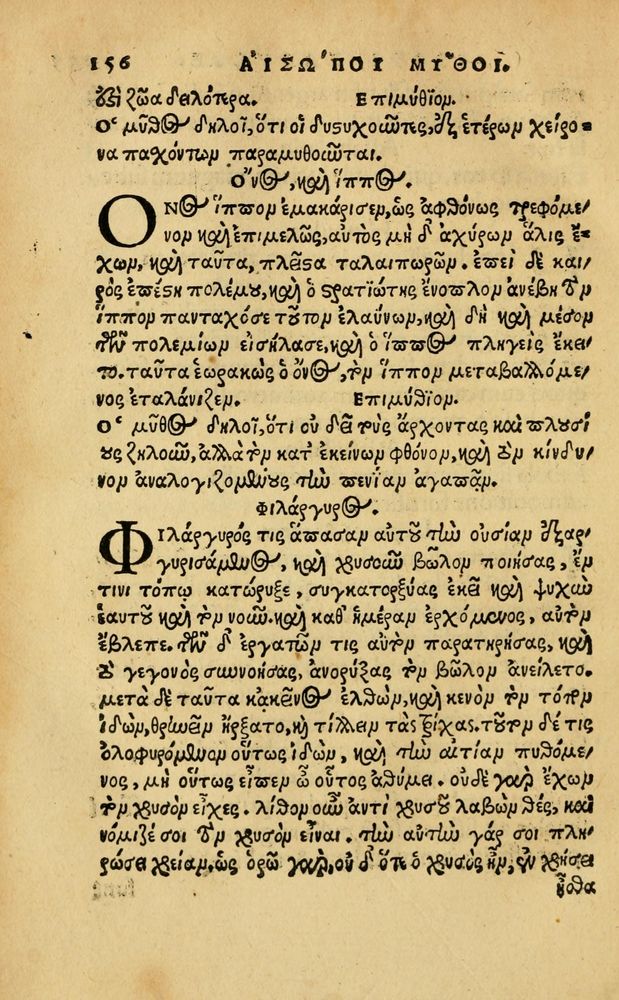 156 ΑΙΣΩΠΟΥ ΜΥΘΟΙ.
ἐστὶ ζῶα δειλότερα. Επιμύθιον.
Ο μῦθος δηλοῖ, ὅτι οἱ δυςυχοῦντες, ἐξ ἑτέρων χείρο-
να παχόντων παραμυθοῦνται.
Ὄνος, καὶ ἵππος.
ΟΝος ἵππον ἐμακάρισεν, ὡς ἀφθόνως τρεφόμε-
νον καὶ ἐπιμελῶς, αὐτὸς μὴ δ' ἀχύρων ἅλις ἔ-
χων, καὶ ταῦτα, πλεῖςα ταλαιπωρῶν. ἐπεὶ δὲ και-
ρὸς ἐπέςη πολέμου, καὶ ὁ ςρατιώτης ἔνοπλον ἀνέβη τὸν
ἵππον πανταχόσε τοῦτον ἐλαύνων, καὶ δὴ καὶ μέσον
τῶν πολεμίων εἰσήλασε, καὶ ὁ ἵππος πληγεὶς ἔκει-
το. ταῦτα ἑωρακὼς ὁ ὄνος, τὸν ἵππον μεταβαλλόμε-
νος ἐταλάνιζεν. Επιμύθιον.
Ο μῦθος δηλοῖ, ὅτι οὐ δεῖ τοὺς ἄρχοντας καὶ πλουσί-
ους ζηλοῦν, ἀλλὰ τὸν κατ' ἐκείνων φθόνον, καὶ τὸν κίνδυ-
νον ἀναλογιζομένους τὴν πενίαν ἀγαπᾶν.
Φιλάργυρος.
ΦΙλάργυρός τις ἅπασαν αὐτοῦ τὴν οὐσίαν ἐξαρ-
γυρισάμενος, καὶ χρυσοῦν βῶλον ποιήσας, ἔν
τινι τόπῳ κατώρυξε, συγκατορύξας ἐκεῖ καὶ ψυχὴν
ἑαυτοῦ καὶ τὸν νοῦν. καὶ καθ' ἡμέραν ἐρχόμενος, αὐτὸν
ἔβλεπε. τῶν δ' ἐργατῶν τις αὐτὸν παρατηρήσας, καὶ
τὸ γεγονὸς συννοήσας, ἀνορύξας τὸν βῶλον ἀνείλετο.
μετὰ δὲ ταῦτα κἀκεῖνος ἐλθὼν, καὶ κενὸν τὸν τόπον
ἰδὼν, θρηνεῖν ἤρξατο, καὶ τίλλειν τὰς τρίχας. τοῦτον δέ τις
ὀλοφυρόμενον οὕτως ἰδὼν, καὶ τὴν αἰτίαν πυθόμε-
νος, μὴ οὕτως εἶπεν ὦ οὗτος ἀθύμει. οὐδὲ γὰρ ἔχων
τὸν χρυσὸν εἶχες. λίθον οὖν ἀντὶ χρυσοῦ λαβὼν θές, καὶ
νόμιζέ σοι τὸν χρυσὸν εἶναι. τὴν αὐτὴν γάρ σοι πλη-
ρώσει χρείαν, ὡς ὁρῶ γὰρ, οὐ δ' ὅτε ὁ χρυσὸς ἦν, ἐν χρήσει
ἦσθα